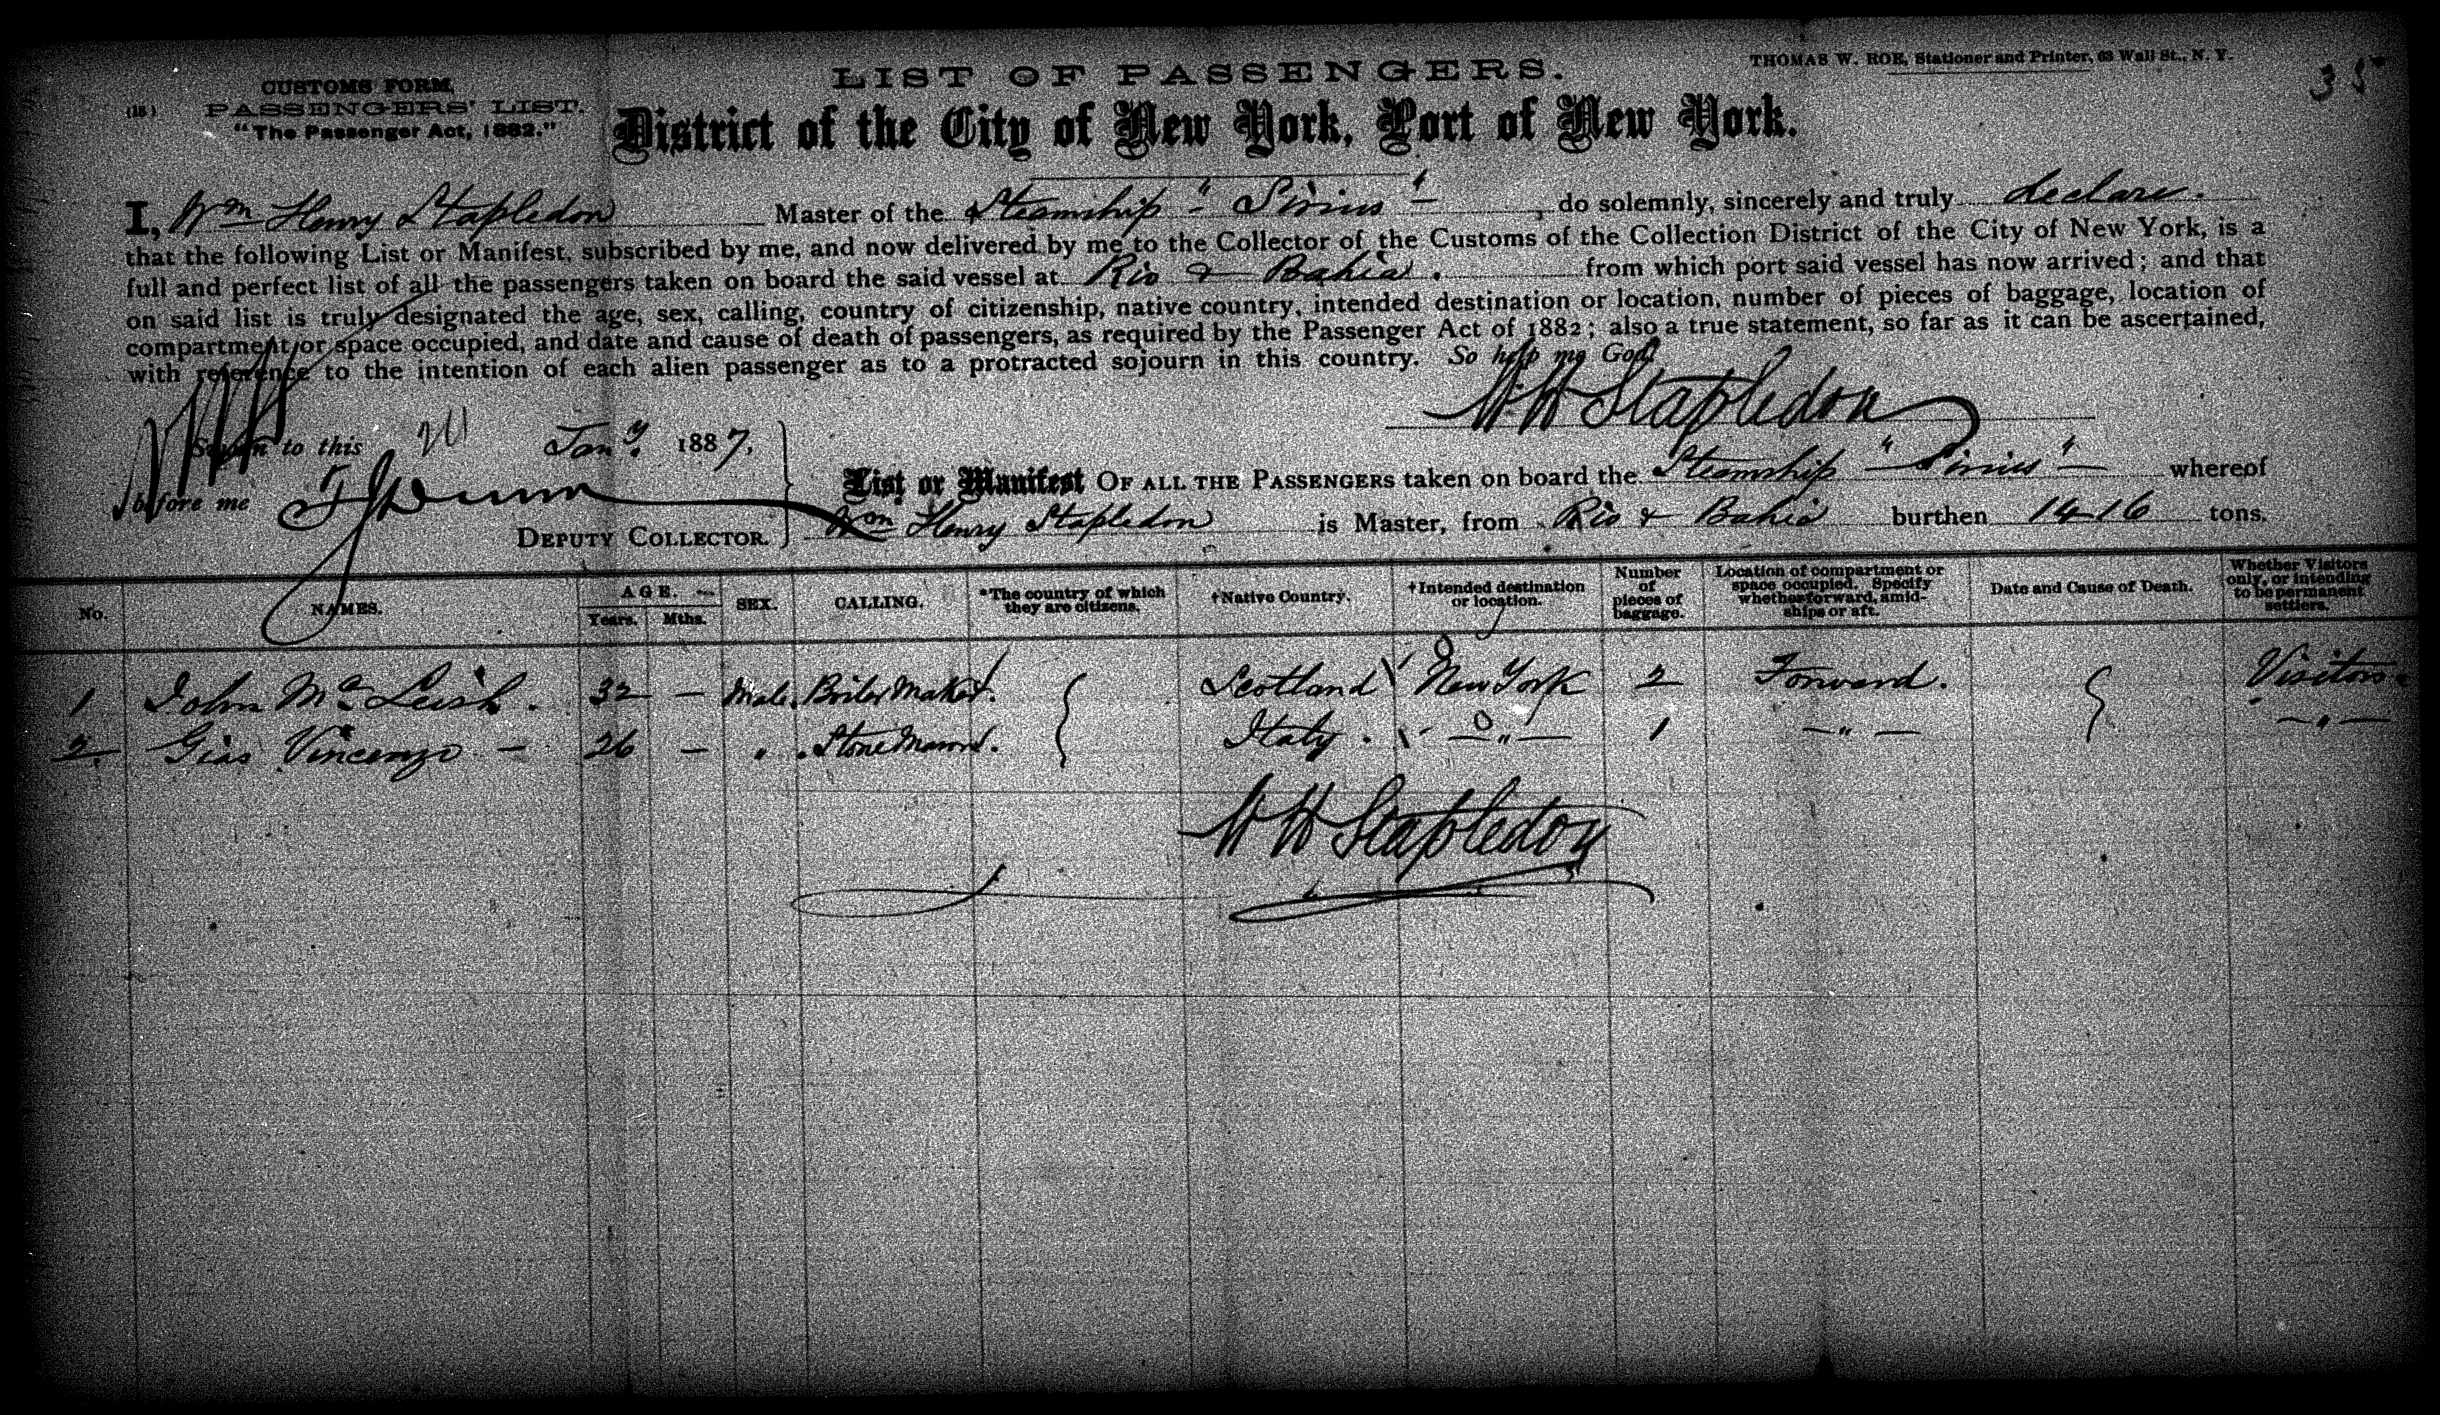 CUSTOMS FORM,
(15) PASSENGERS' LIST.
"The Passenger Act, 1882."
LIST OF PASSENGERS.
THOMAS W. ROE, Stationer and Printer, 63 Wall St., N. Y.
35
District of the City of New York, Port of New York.
I, Wm Henry Stapledon Master of the Steamship "Sirius", do solemnly, sincerely and truly declare.
that the following List or Manifest, subscribed by me, and now delivered by me to the Collector of the Customs of the Collection District of the City of New York, is a
full and perfect list of all the passengers taken on board the said vessel at Rio & Bahia. from which port said vessel has now arrived; and that
on said list is truly designated the age, sex, calling, country of citizenship, native country, intended destination or location, number of pieces of baggage, location of
compartment or space occupied, and date and cause of death of passengers, as required by the Passenger Act of 1882; also a true statement, so far as it can be ascertained,
with reference to the intention of each alien passenger as to a protracted sojourn in this country. So help me God.
W H Stapledon
Sworn to this Jany. 1887,
before me
DEPUTY COLLECTOR.
List or Manifest OF ALL THE PASSENGERS taken on board the Steamship "Sirius" whereof
Wm Henry Stapledon is Master, from Rio & Bahia burthen 1416 tons.
No. NAMES. AGE. Years. Mths. SEX. CALLING. *The country of which they are citizens. †Native Country. †Intended destination or location. Number of pieces of baggage. Location of compartment or space occupied. Specify whether forward, amidships or aft. Date and Cause of Death. Whether Visitors only, or intending to be permanent settlers.
1 John Mc Leish. 32 — Male. Boiler Maker. Scotland New York 2 Forward. Visitors.
2. Gias Vincenzo — 26 — " Stone Mason. Italy. —"— 1 —"— —"—
W H Stapledon